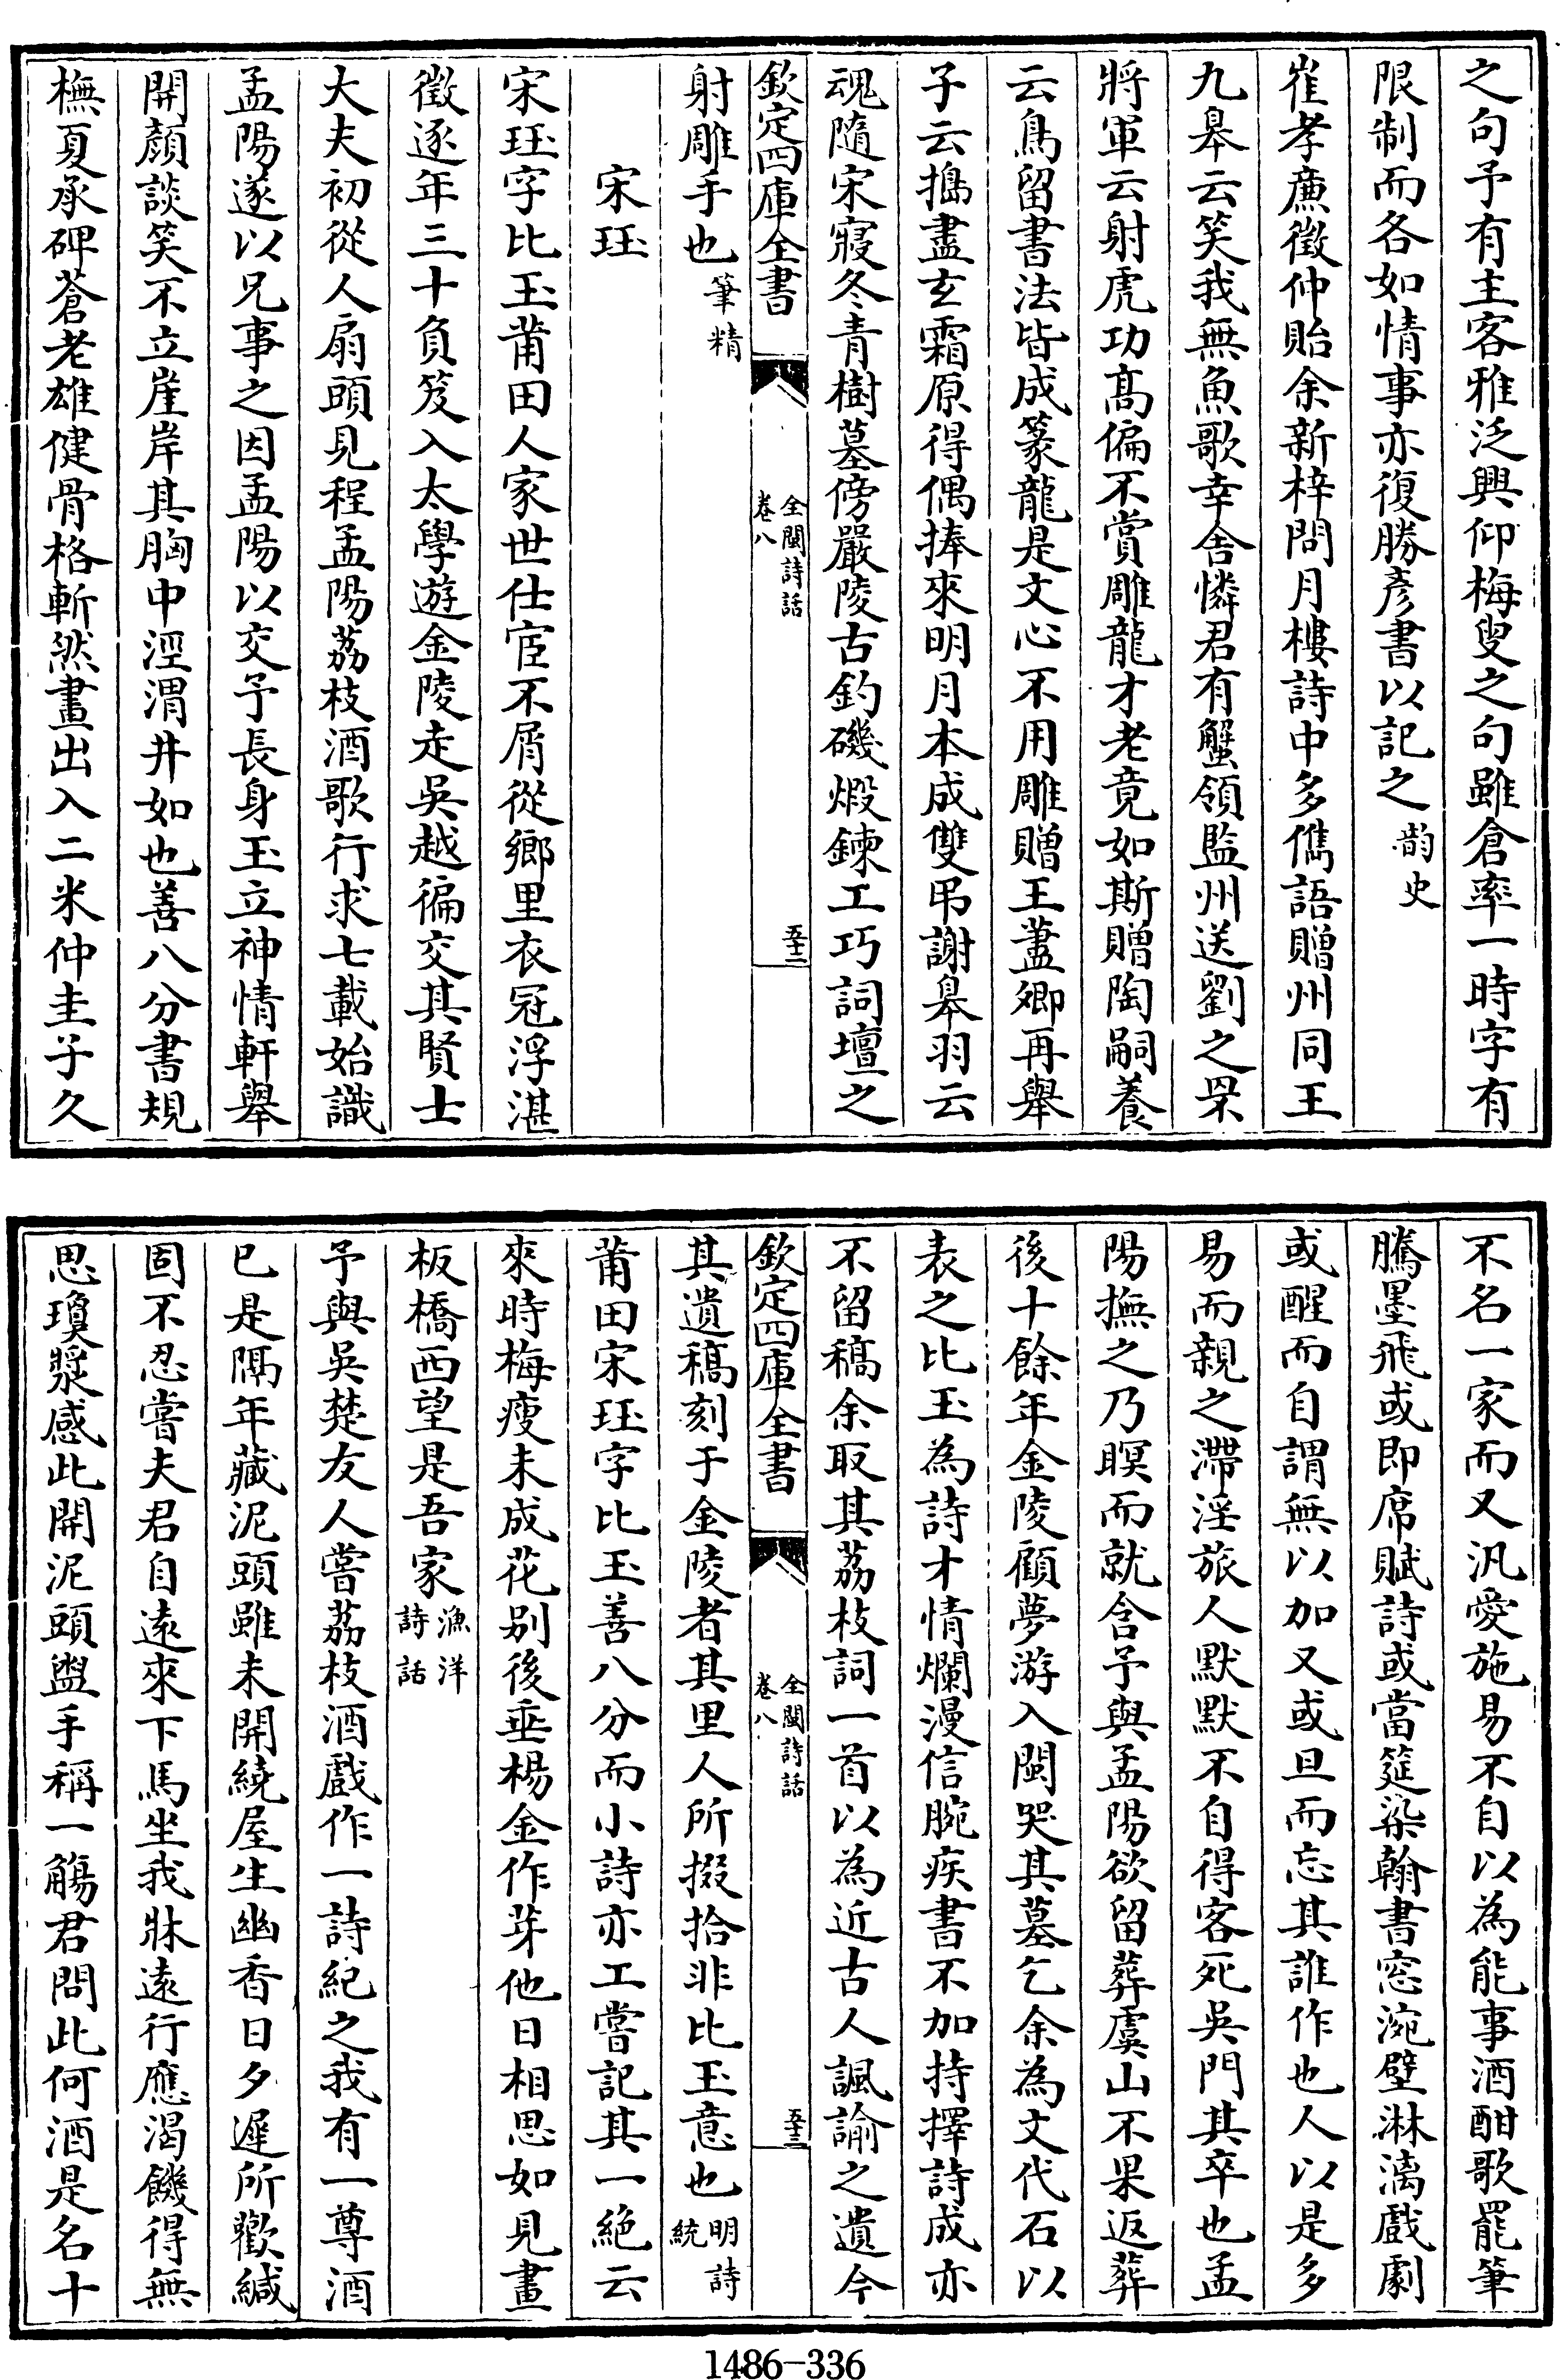 之句予有主客雅泛興仰梅叟之句雖倉率一時字有
限制而各如情事亦復勝彥書以記之韵史
崔孝廉徵仲貽余新梓問月樓詩中多儁語贈州同王
九皋云笑我無魚歌幸舍憐君有蟹領監州送劉之罘
將軍云射虎功髙偏不賞雕龍才老竟如斯贈陶嗣養
云鳥留書法皆成篆龍是文心不用雕贈王藎卿再舉
子云搗盡玄霜原得偶捧來明月本成雙弔謝皋羽云
魂隨宋寢冬青樹墓傍嚴陵古釣磯煅鍊工巧詞壇之
欽定四庫全書
全閩詩話
卷八
五十二
射雕手也筆精
宋珏
宋珏字比玉莆田人家世仕宦不屑從鄉里衣冠浮湛
徵逐年三十負笈入太學遊金陵走吳越徧交其賢士
大夫初從人扇頭見程孟陽荔枝酒歌行求七載始識
孟陽遂以兄事之因孟陽以交予長身玉立神情軒舉
開顏談笑不立崖岸其胸中涇渭井如也善八分書規
橅夏承碑蒼老雄健骨格斬然畫出入二米仲圭子久
不名一家而又汎愛施易不自以為能事酒酣歌罷筆
騰墨飛或即席賦詩或當筵染翰書窓涴壁淋漓戲劇
或醒而自謂無以加又或旦而忘其誰作也人以是多
易而親之滯淫旅人默默不自得客死吳門其卒也孟
陽撫之乃瞑而就含予與孟陽欲留葬虞山不果返葬
後十餘年金陵顧夢游入閩哭其墓乞余為文代石以
表之比玉為詩才情爛漫信腕疾書不加持擇詩成亦
不留稿余取其荔枝詞一首以為近古人諷諭之遺今
欽定四庫全書
全閩詩話
卷八
五十三
其遺稿刻于金陵者其里人所掇拾非比玉意也明詩統
莆田宋珏字比玉善八分而小詩亦工嘗記其一絕云
來時梅瘦未成花别後垂楊金作芽他日相思如見畫
板橋西望是吾家漁洋詩話
予與吳楚友人嘗荔枝酒戲作一詩紀之我有一尊酒
已是隔年藏泥頭雖未開繞屋生幽香日夕遲所歡緘
固不忍嘗夫君自遠來下馬坐我牀遠行應渴饑得無
思瓊漿感此開泥頭盥手稱一觴君問此何酒是名十
1486-336